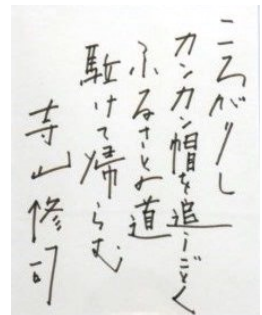 ころがりし
カンカン帽を追うごとく
ふるさとの道
駈けて帰らむ
寺山修司